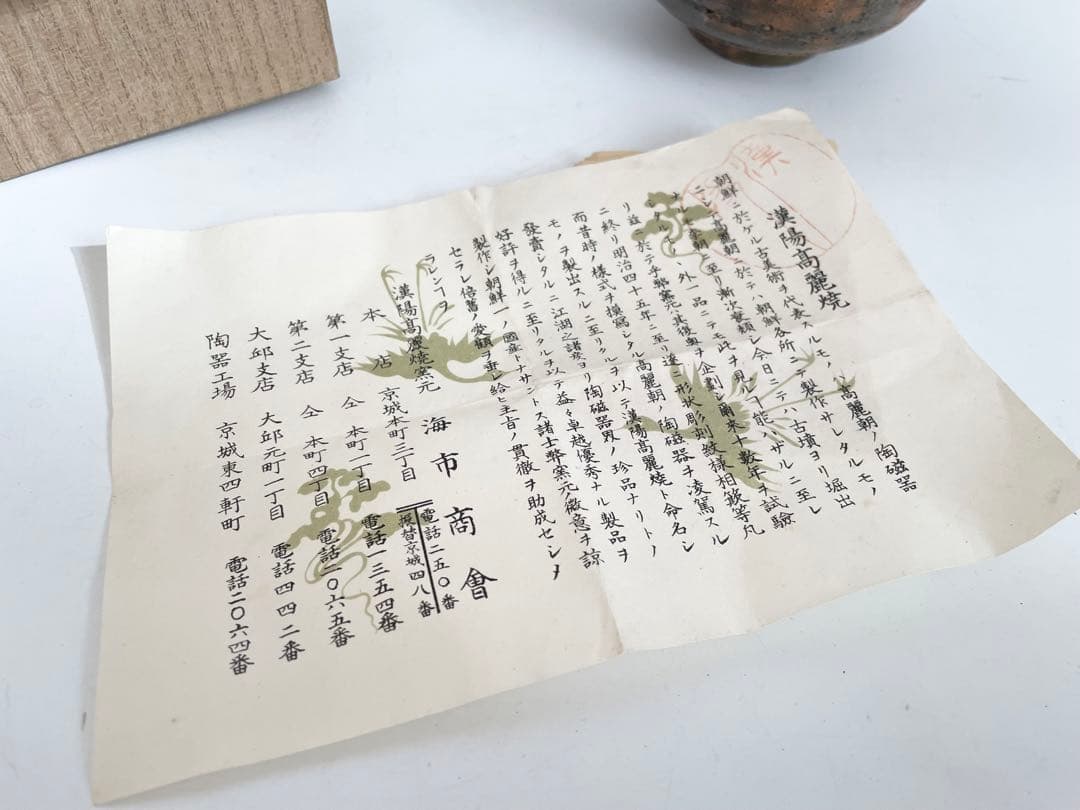 漢陽高麗焼
朝鮮ニ於ケル古美術ヲ代表スルモノハ高麗朝ノ陶磁器
ニシテ高麗朝ニ於テハ朝鮮各所ニテ製作サレタルモノ
ナルモ李朝ニ至リ漸次衰頽シ今日ニテハ古墳ヨリ堀出
シタルモノヽ外一品ニテモ此ヲ見ルヿ能ハザルニ至レ
リ茲ニ於テ乎弊窯元ハ其復興ヲ企劃シ爾来十数年ヲ試験
ニ終リ明治四十五年ニ至リ遂ニ形状彫刻紋様相嵌等丸
而昔時ノ様式ヲ模寫シタル高麗朝ノ陶磁器ヲ凌駕スル
モノヲ製出スルニ至リタルヲ以テ漢陽高麗焼ト命名シ
發賣シタルニ江湖之諸彦ヨリ陶磁器界ノ珍品ナリトノ
好評ヲ得ルニ至リタルヲ以テ益々卓越優秀ナル製品ヲ
製作シ朝鮮一ノ國産トナサントス諸士弊窯元ノ微意ヲ諒
セラレ倍舊ノ愛顧ヲ垂レ給ヒ主旨ノ貫徹ヲ助成セシメ
ラレンヿヲ
漢陽高麗焼窯元 海市商會
本店 京城本町三丁目 電話二五〇番
振替京城四八番
第一支店 仝 本町二丁目 電話一三五四番
第二支店 仝 本町四丁目 電話二〇六五番
大邱支店 大邱元町一丁目 電話四四二番
陶器工場 京城東四軒町 電話二〇六四番